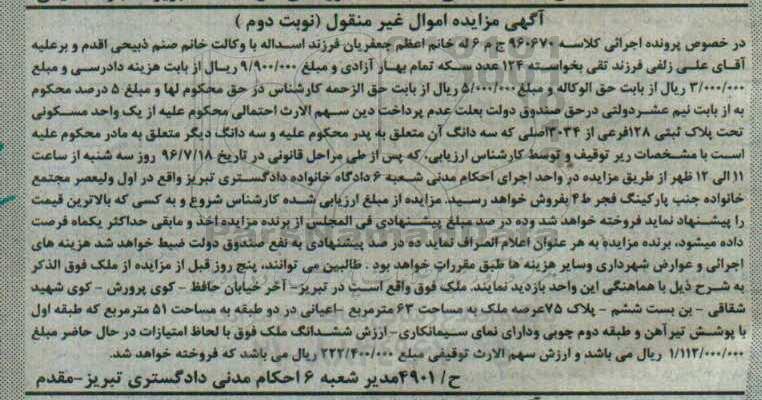 آگهی مزایده اموال غیر منقول (نوبت دوم )
در خصوص پرونده اجرائی کلاسه ۹۶۰۶۷۰ ج م ۶ له خانم اعظم جعفریان فرزند اسداله با وکالت خانم صنم ذبیحی اقدم و برعلیه
آقای علی زلفی فرزند تقی بخواسته ۱۲۴ عدد سکه تمام بهار آزادی و مبلغ ۹/۹۰۰/۰۰۰ ریال از بابت هزینه دادرسی و مبلغ
۳/۰۰۰/۰۰۰ ریال از بابت حق الوکاله و مبلغ ۵/۰۰۰/۰۰۰ ریال از بابت حق الزحمه کارشناس در حق محکوم لها و مبلغ ۵ درصد محکوم
به از بابت نیم عشر دولتی درحق صندوق دولت بعلت عدم پرداخت دین سهم الارث احتمالی محکوم علیه از یک واحد مسکونی
تحت پلاک ثبتی ۱۲۸فرعی از ۳۰۳۴اصلی که سه دانگ آن متعلق به پدر محکوم علیه و سه دانگ دیگر متعلق به مادر محکوم علیه
است با مشخصات زیر توقیف و توسط کارشناس ارزیابی، که پس از طی مراحل قانونی در تاریخ ۹۶/۷/۱۸ روز سه شنبه از ساعت
۱۱ الی ۱۲ ظهر از طریق مزایده در واحد اجرای احکام مدنی شعبه ۶ دادگاه خانواده دادگستری تبریز واقع در اول ولیعصر مجتمع
خانواده جنب پارکینگ فجر ط۴ بفروش خواهد رسید. مزایده از مبلغ ارزیابی شده کارشناس شروع و به کسی که بالاترین قیمت
را پیشنهاد نماید فروخته خواهد شد وده در صد مبلغ پیشنهادی فی المجلس از برنده مزایده اخذ و مابقی حداکثر یکماه فرصت
داده میشود، برنده مزایده به هر عنوان اعلام انصراف نماید ده در صد پیشنهادی به نفع صندوق دولت ضبط خواهد شد هزینه های
اجرائی و عوارض شهرداری وسایر هزینه ها طبق مقررات خواهد بود . طالبین می توانند، پنج روز قبل از مزایده از ملک فوق الذکر
به شرح ذیل با هماهنگی این واحد بازدید نمایند. ملک فوق واقع است در تبریز- آخر خیابان حافظ - کوی پرورش - کوی شهید
شقاقی - بن بست ششم - پلاک ۷۵عرصه ملک به مساحت ۶۳ مترمربع -اعیانی در دو طبقه به مساحت ۵۱ مترمربع که طبقه اول
با پوشش تیرآهن و طبقه دوم چوبی ودارای نمای سیمانکاری- ارزش ششدانگ ملک فوق با لحاظ امتیازات در حال حاضر مبلغ
۱/۱۱۲/۰۰۰/۰۰۰ ریال می باشد و ارزش سهم الارث توقیفی مبلغ ۲۲۲/۴۰۰/۰۰۰ ریال می باشد که فروخته خواهد شد.
ح/ ۴۹۰۱مدیر شعبه ۶ احکام مدنی دادگستری تبریز-مقدم